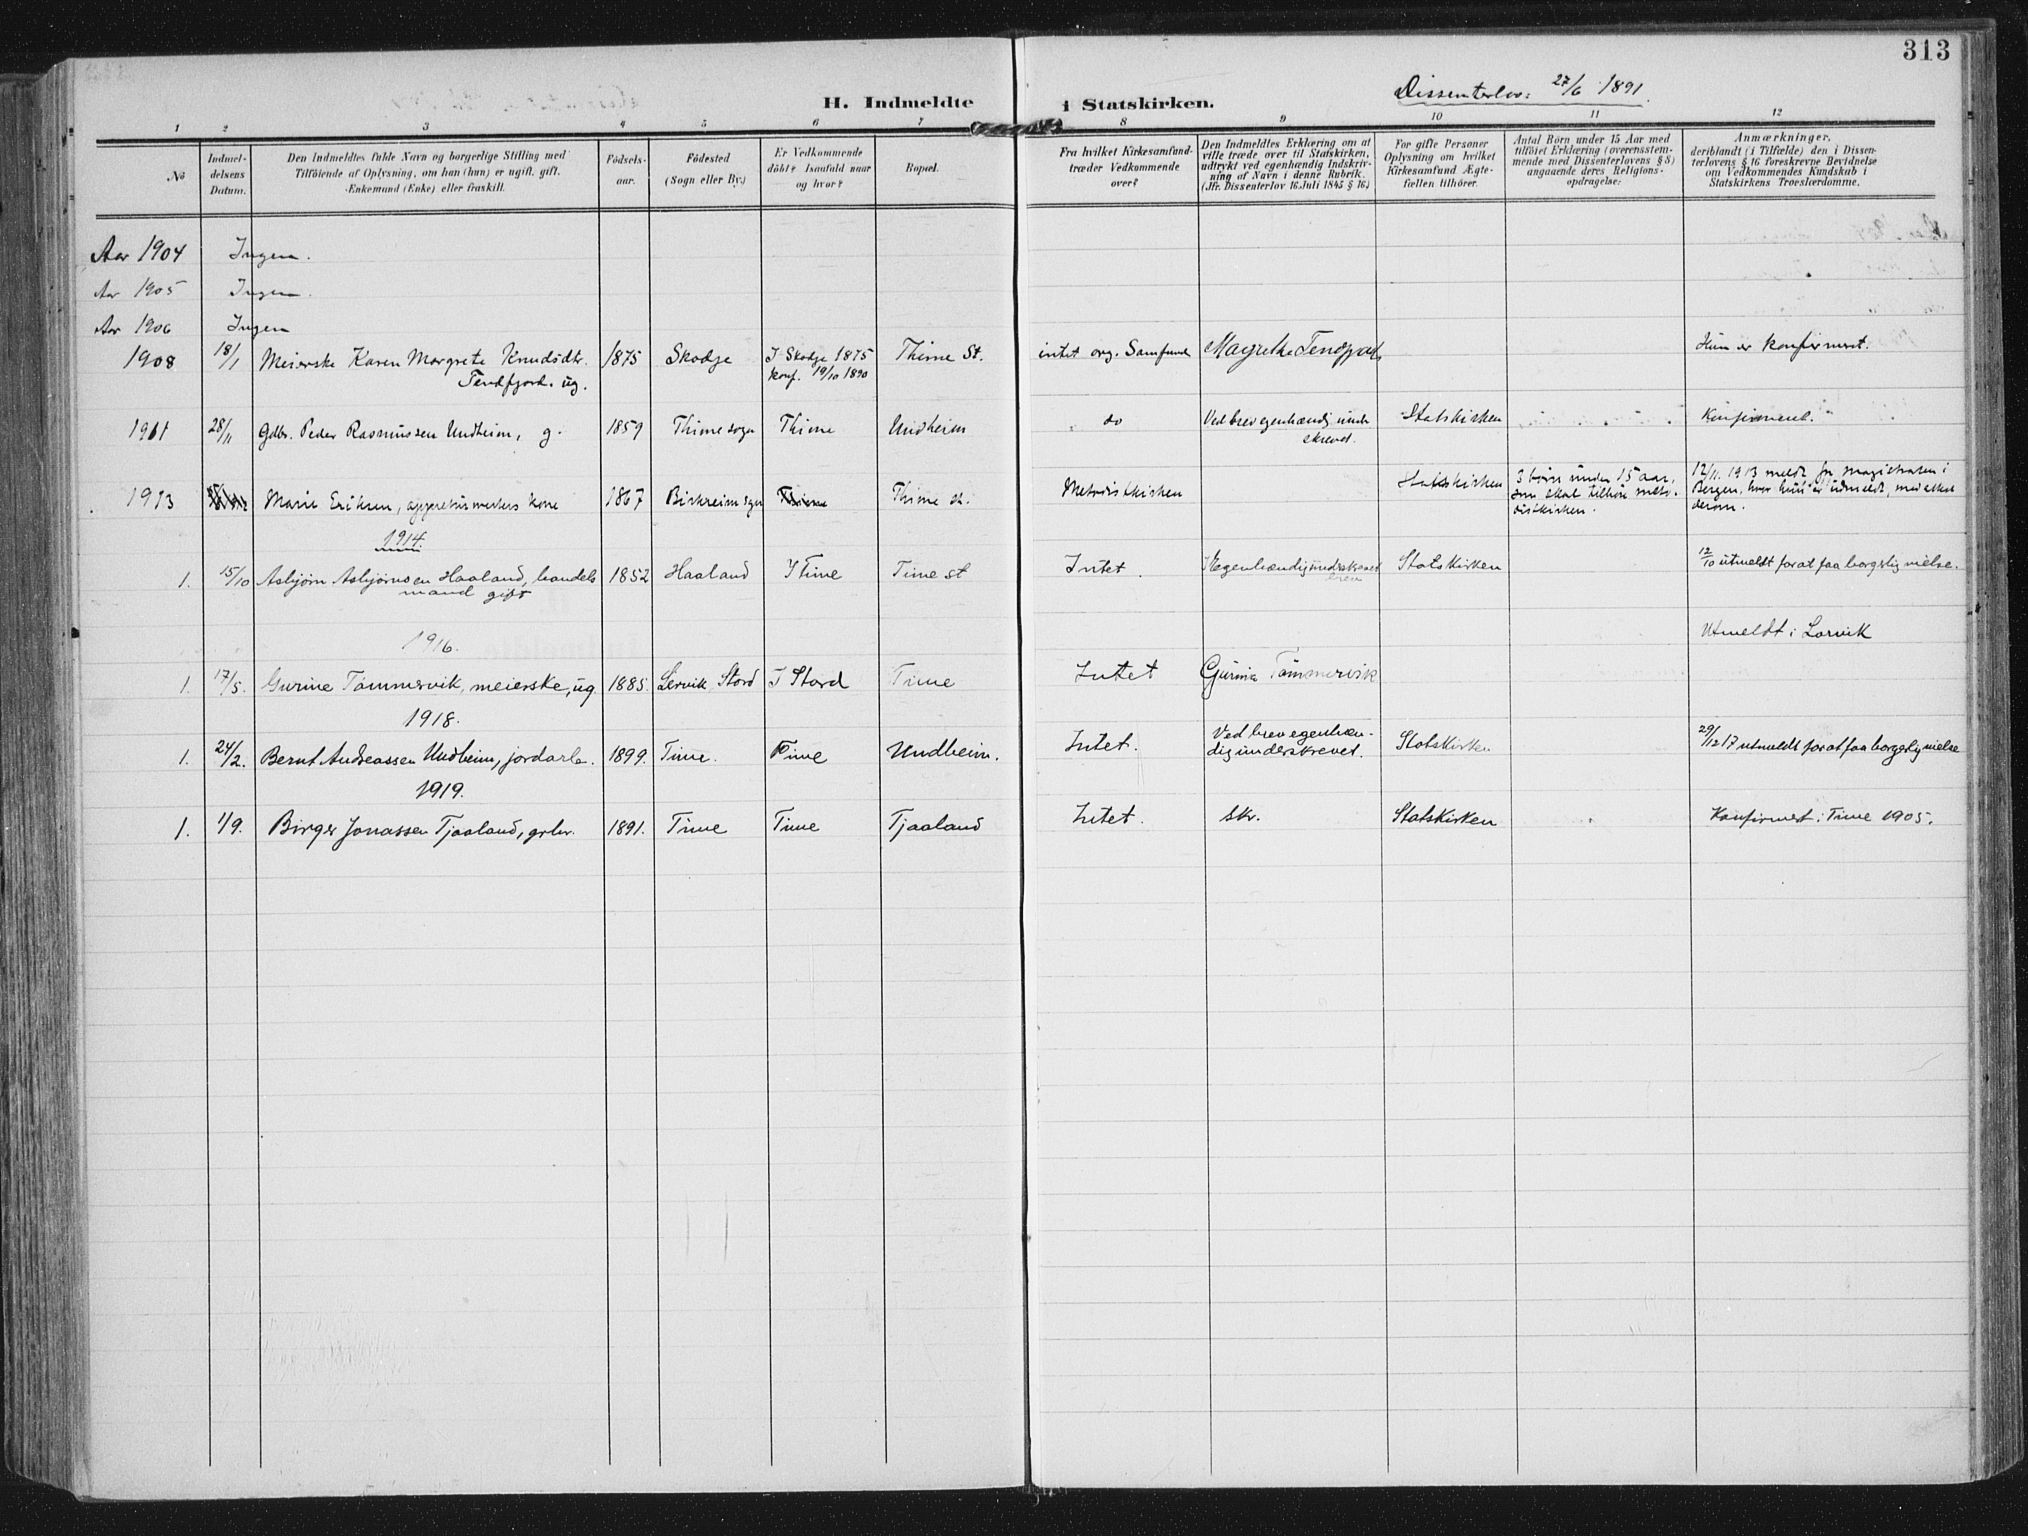 313
Dissenterlov: 27/6 1891.
H. Indmeldte i Statskirken.
1 2 3 4 5 6 7 8 9 10 11 12
No
Indmel-
delsens
Datum.
Den Indmeldtes fulde Navn og borgerlige Stilling med
Tilföiende af Oplysning, om han (hun) er ugift, gift,
Enkemand (Enke) eller fraskilt.
Födsels-
aar.
Födested
(Sogn eller By.)
Er Vedkommende
döbt? Isaafald naar
og hvor?
Bopæl.
Fra hvilket Kirkesamfund-
træder Vedkommende
over?
Den Indmeldtes Erklæring om at
ville træde over til Statskirken,
udtrykt ved egenhændig Indskriv-
ning af Navn i denne Rubrik.
(Jfr. Dissenterlov 16 Juli 1845 § 16.)
For gifte Personer
Oplysning om hvilket
Kirkesamfund Ægte-
fællen tilhörer.
Antal Börn under 15 Aar med
tilföiet Erklæring (overensstem-
mende med Dissenterlovens § 8)
angaaende deres Religions-
opdragelse:
Anmærkninger,
deriblandt (i Tilfælde) den i Dissen-
terlovens § 16 foreskrevne Bevidnelse
om Vedkommendes Kundskab i
Statskirkens Troeslærdomme.
Aar 1904 Ingen.
Aar 1905 Ingen.
Aar 1906 Ingen
1908 18/1 Meierske Karen Margrete Knudsdtr. 1875 Skodje I Skodje 1875 Thime St. intet org. Samfund Hun er konfirmert.
Tendfjord. ug. konf. 19/10 1890
1911 28/11 Gdbr. Peder Rasmussen Undheim, g. 1859 Thime sogn Thime Undheim do Ved brev egenhændig under Statskirken Konfirmert.
skrevet.
1913 Marie Eriksen, appreturmesters kone 1867 Birkreim sogn Thime Thime st. Metodistkirken Statskirken 3 börn under 15 aar, 12/11 1913 meldt fra magistraten i
som skal tilhöre meto- Bergen, hvor hun er udmeldt,
distkirken.
1914.
1. 15/10 Asbjörn Asbjörnsen Haaland, handels 1852 Haaland I Time Time st Intet. Statskirken 12/10 utmeldt for at faa borgerlig vielse.
mand gift
1916. Utmeldt i Larvik
1. 17/5. Gurine Tömmervik, meierske, ug 1885. Lervik, Stord I Stord Time Intet Gurine Tömmervik
1918.
1. 24/2. Bernt Andreassen Undheim, jordarb. 1899. Time. Time Undheim. Intet. Ved brev egenhæn- Statskirken 29/12 17 utmeldt for at faa borgerlig vielse
dig underskrevet.
1919.
1. 1/9. Birger Jonassen Tjaaland, grbr. 1891. Time Time Tjaaland Intet. Skr. Statskirken Konfirmert i Time 1905.